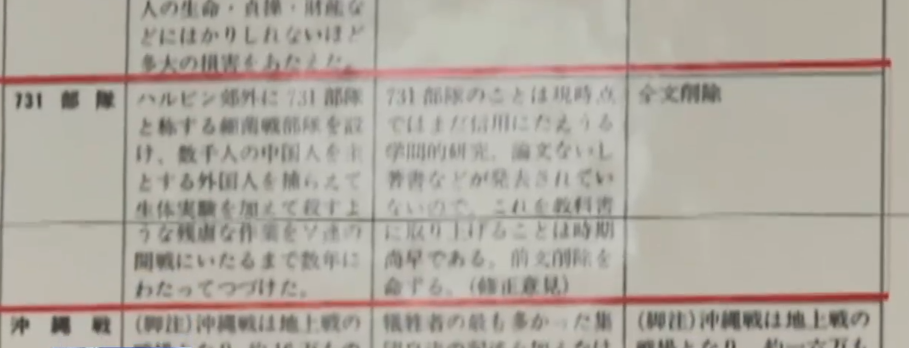 人の生命・貞操・財産な
どにはかりしれないほど
多大の損害をあたえた。
731 部 隊
ハルビン郊外に 731 部隊
と称する細菌戦部隊を設
け、数千人の中国人を主
とする外国人を捕らえて
生体実験を加えて殺すよ
うな残虐な作業をソ連の
開戦にいたるまで数年に
わたってつづけた。
731 部隊のことは現時点
ではまだ信用にたえうる
学問的研究、論文ないし
著書などが発表されてい
ないので、これを教科書
に取り上げることは時期
尚早である。前文削除を
命ずる。(修正意見)
全文削除
沖 縄 戦
(脚注)沖縄戦は地上戦の
犠牲者の最も多かった集
(脚注)沖縄戦は地上戦の